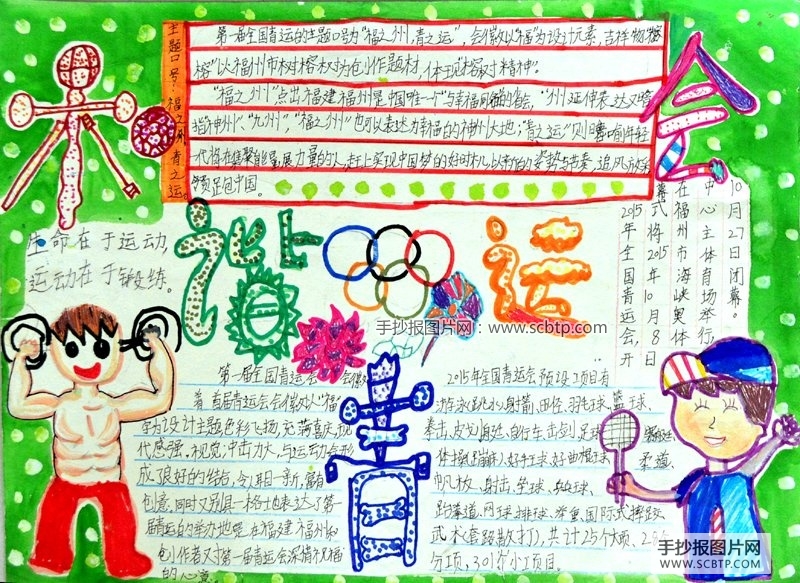 主题口号:福之州,青之运。
第一届全国青运的主题口号为"福之州,青之运",会徽以"福"为设计元素,吉祥物"榕
榕"以福州市树榕树为创作题材,体现"榕树精神"。
"福之州"点出福建福州是中国唯一个与幸福同名的省会,"州"延伸表达又
指神州、"九州","福之州"也可以表达为幸福的神州大地,"青之运"则寓喻年轻
一代将在集聚能量,展力量的人,赶上实现中国梦的好时机,以新的姿势与节奏,追风
足跑中国。
会
2015年全国青运会,开
幕式将2015年10月8日
在福州市海峡奥体
中心主体育场举行,
10月27日闭幕。
生命在于运动,
运动在于锻练。
运
手抄报图片网:www.scbtp.com
第一届全国青运会会徽
首届青运会会徽以"福"
字为设计主题色彩飞扬,充满喜庆,现
代感强,视觉冲击力大,与运动会形
成了良好的结合,令人耳目一新,富有
创意,同时又别具一格地表达了第一
届青运的举办地是在福建福州和
创作者对第一届青运会深情祝福
的心意。
2015年全国青运会预设项目有
游泳、跳水、射箭、田径、羽毛球、篮球、
拳击、皮划艇、自行车、击剑、足球、
体操(蹦床)、手球、曲棍球、柔道、
帆板、射击、垒球、乒乓球、
跆拳道、网球、排球、举重、国际式摔跤、
武术(套路、散打),共计25个大项、29个
分项,301个小项目。
手抄报图片网
WWW.SCBTP.COM